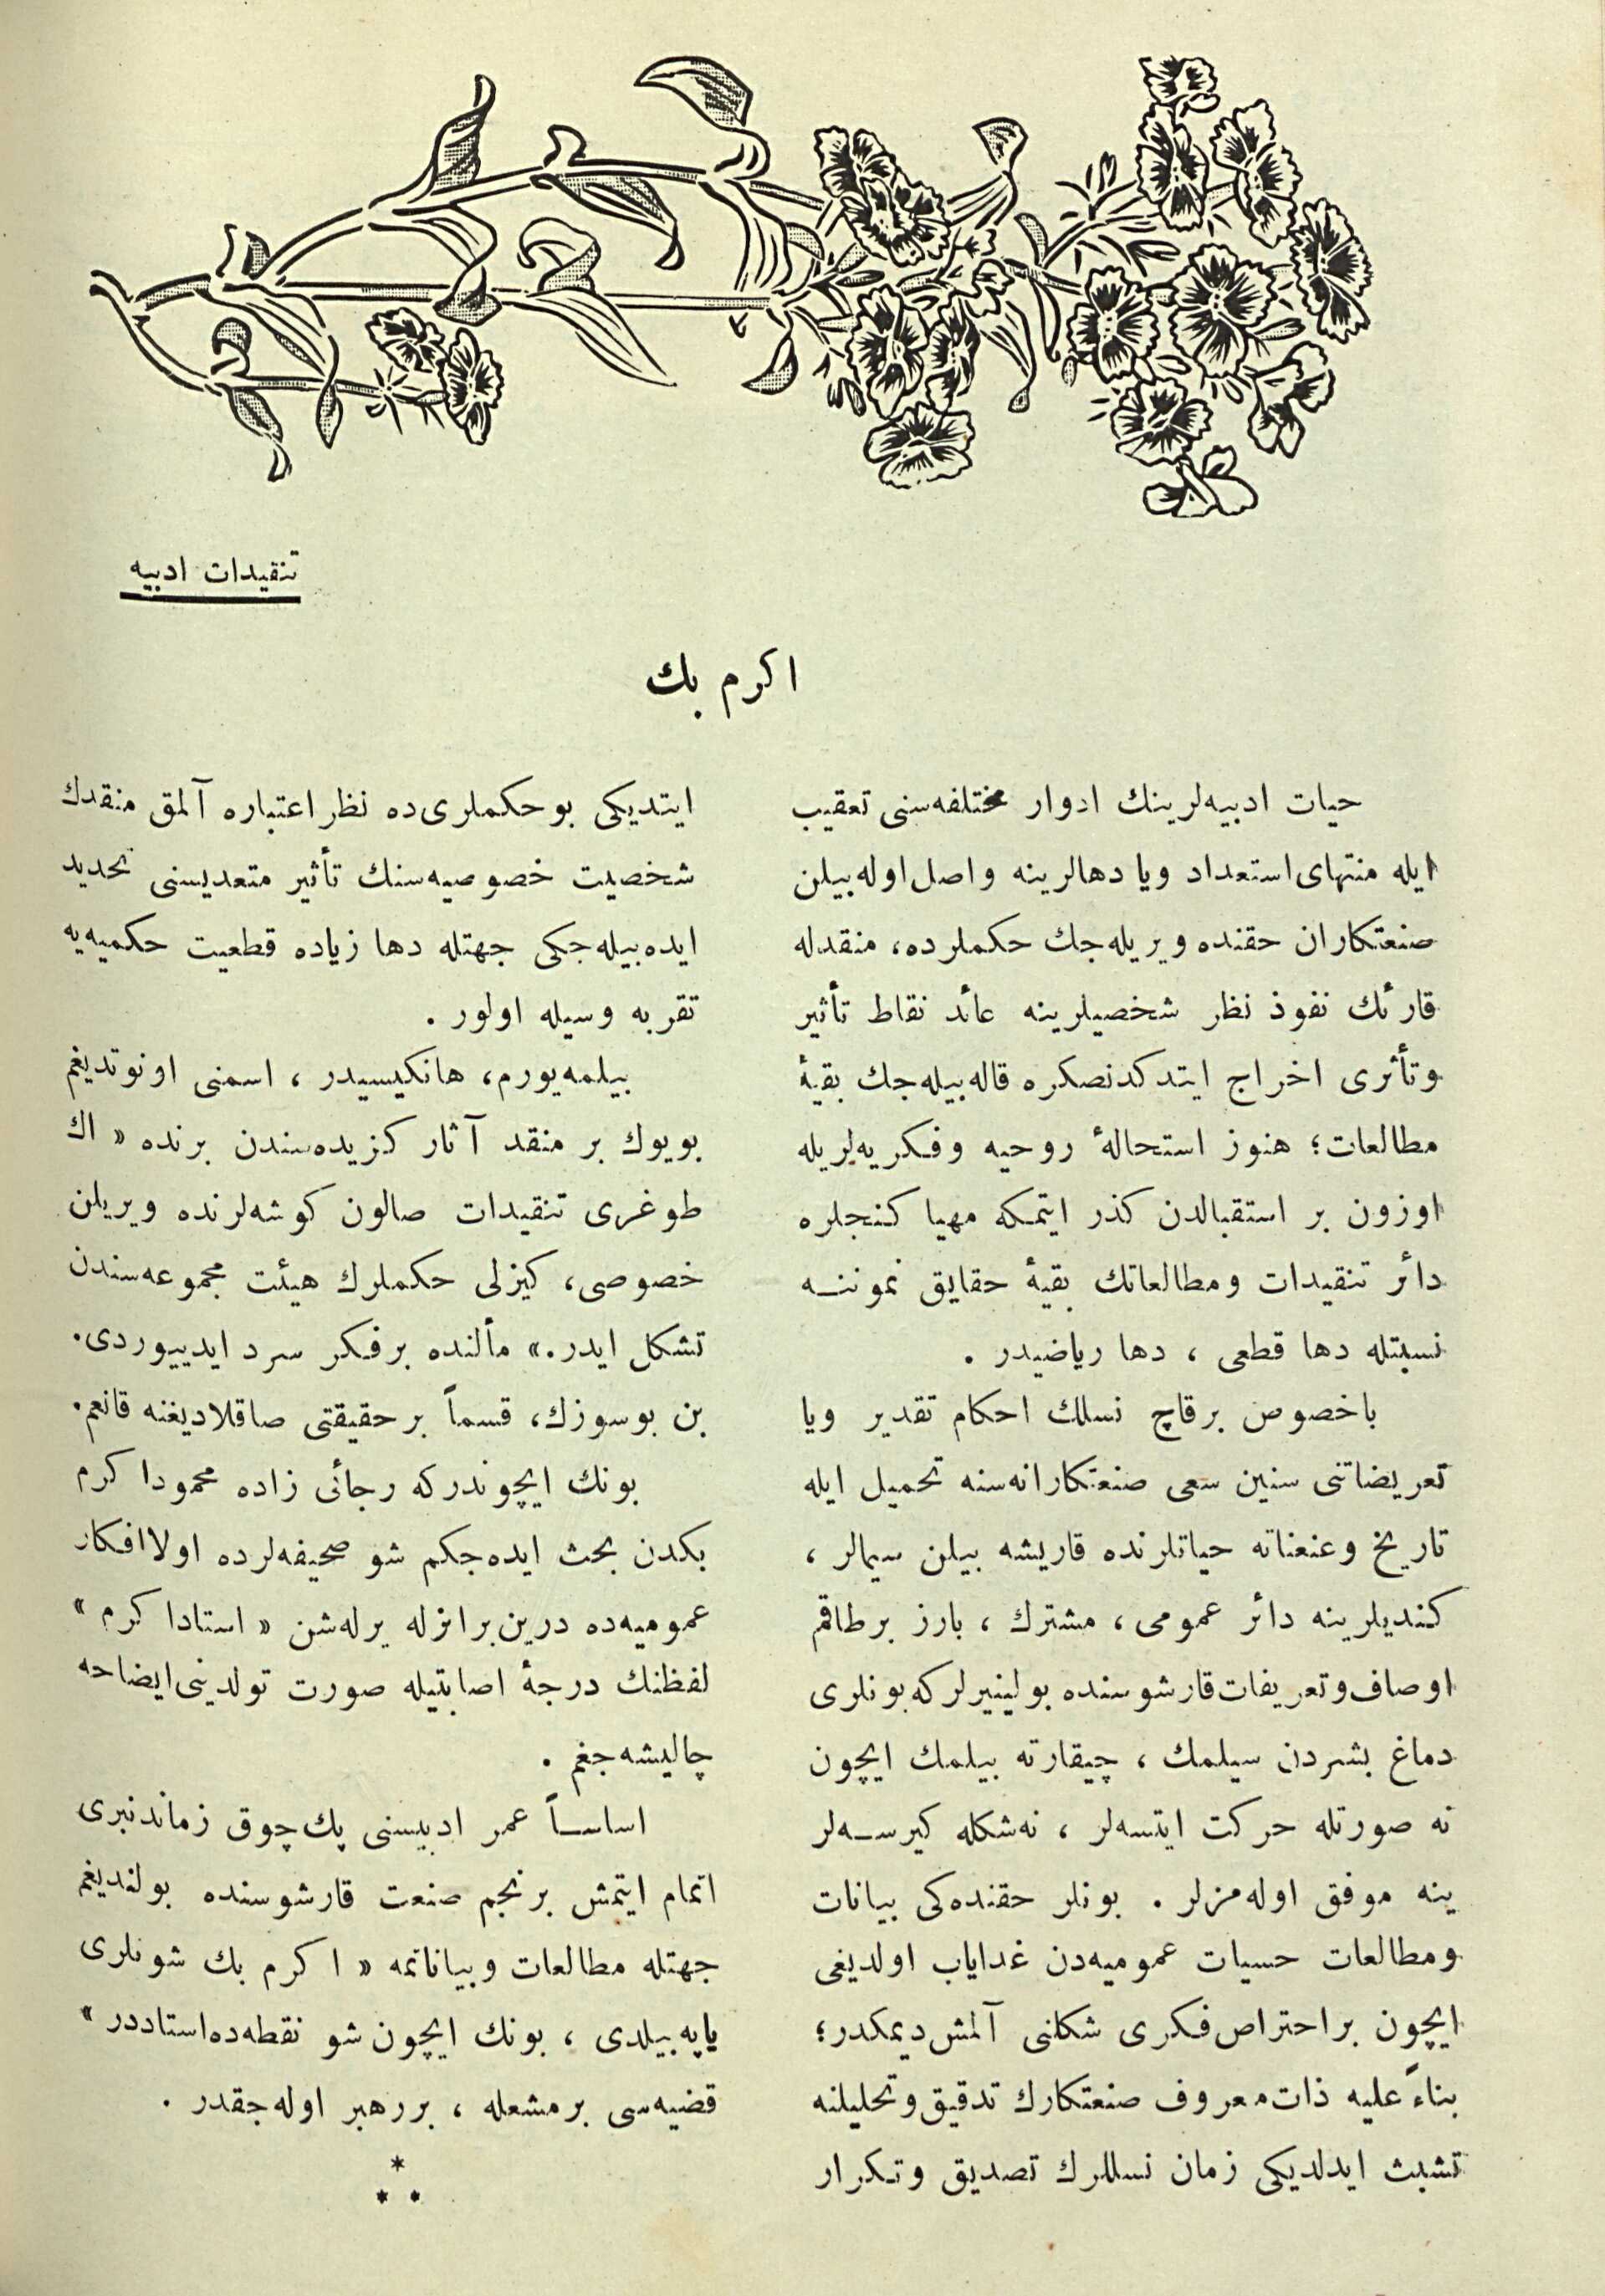 تنقيدات ادبيه
اكرم بك
حيات ادبيه‌لرينك ادوار مختلفه‌سنى تعقيب
ايله منتهاى استعداد ويا دهالرينه واصل اوله‌بيلن
صنعتكاران حقنده ويريله‌جك حكملرده، منقدله
قارئك نفوذ نظر شخصيلرينه عائد نقاط تأثير
وتأثرى اخراج ايتدكدنصكره قاله‌بيله‌جك بقيهٔ
مطالعات؛ هنوز استحالهٔ روحيه وفكريه‌لريله
اوزون بر استقبالدن كذر ايتمكه مهيا كنجلره
دائر تنقيدات ومطالعاتك بقيهٔ حقايق نموننه
نسبتله دها قطعى ، دها رياضيدر .
باخصوص برقاچ نسلك احكام تقدير ويا
تعريضاتنى سنين سعى صنعتكارانه‌سنه تحميل ايله
تاريخ وعنعناته حياتلرنده قاريشه بيلن سيمالر ،
كنديلرينه دائر عمومى ، مشترك ، بارز برطاقم
اوصاف وتعريفات قارشوسنده بولينيرلركه بونلرى
دماغ بشردن سيلمك ، چيقارته بيلمك ايچون
نه صورتله حركت ايتسه‌لر ، نه‌شكله كيرسه‌لر
ينه موفق اوله‌مزلر . بونلر حقنده‌كى بيانات
ومطالعات حسيات عموميه‌دن غداياب اولديغى
ايچون براحتراص فكرى شكلنى آلمش ديمكدر؛
بناءً عليه ذات معروف صنعتكارك تدقيق وتحليلنه
تشبث ايدلديكى زمان نسللرك تصديق وتكرار
ايتديكى بوحكملرى‌ده نظر اعتباره آلمق منقدك
شخصيت خصوصيه‌سنك تأثير متعديسنى تحديد
ايده‌بيله‌جكى جهتله دها زياده قطعيت حكميه‌يه
تقربه وسيله اولور .
بيلمه‌يورم، هانكيسيدر ، اسمنى اونوتديغم
بويوك بر منقد آثار كزيده‌سندن برنده « اك
طوغرى تنقيدات صالون كوشه‌لرنده ويريلن
خصوصى، كيزلى حكملرك هيئت مجموعه‌سندن
تشكل ايدر.» مألنده برفكر سرد ايدييوردى.
بن بوسوزك، قسماً بر حقيقتى صاقلاديغنه قانعم.
بونك ايچوندركه رجائى زاده محمودا كرم
بكدن بحث ايده‌جكم شو صحيفه‌لرده اولا افكار
عموميه‌ده درين برانزله يرله‌شن « استادا كرم »
لفظنك درجهٔ اصابتيله صورت تولدينى ايضاحه
چاليشه‌جغم .
اساساً عمر ادبيسنى پك‌چوق زماندنبرى
اتمام ايتمش برنجم صنعت قارشوسنده بولنديغم
جهتله مطالعات وبياناتمه « اكرم بك شونلرى
ياپه‌بيلدى ، بونك ايچون شو نقطه‌ده‌استاددر »
قضيه‌سى برمشعله ، بررهبر اوله‌جقدر .
*
* *